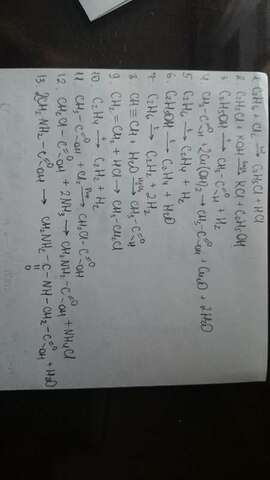 1. C2H6 + Cl2 →hν C2H5Cl + HCl
2. C2H5Cl + KOH →водн KCl + C2H5OH
3. C2H5OH →t CH3-C=O-H + H2
4. CH3-C=O-H + 2Cu(OH)2 → CH3-C=O-OH + Cu2O + 2H2O
5. C2H6 →t C2H4 + H2
6. C2H5OH →t C2H4 + H2O
7. C2H6 →t C2H2 + 2H2
8. CH≡CH + H2O → CH3-C=O-H
9. CH2=CH2 + HCl → CH3-CH2Cl
10. C2H4 →t C2H2 + H2
11. CH3-C=O-OH + Cl2 → CH2Cl-C=O-OH
12. CH2Cl-C=O-OH + 2NH3 → CH2NH2-C=O-OH + NH4Cl
13. 2CH2NH2-C=O-OH → CH2NH2-C-NH-CH2-C=O-OH + H2O
||
O